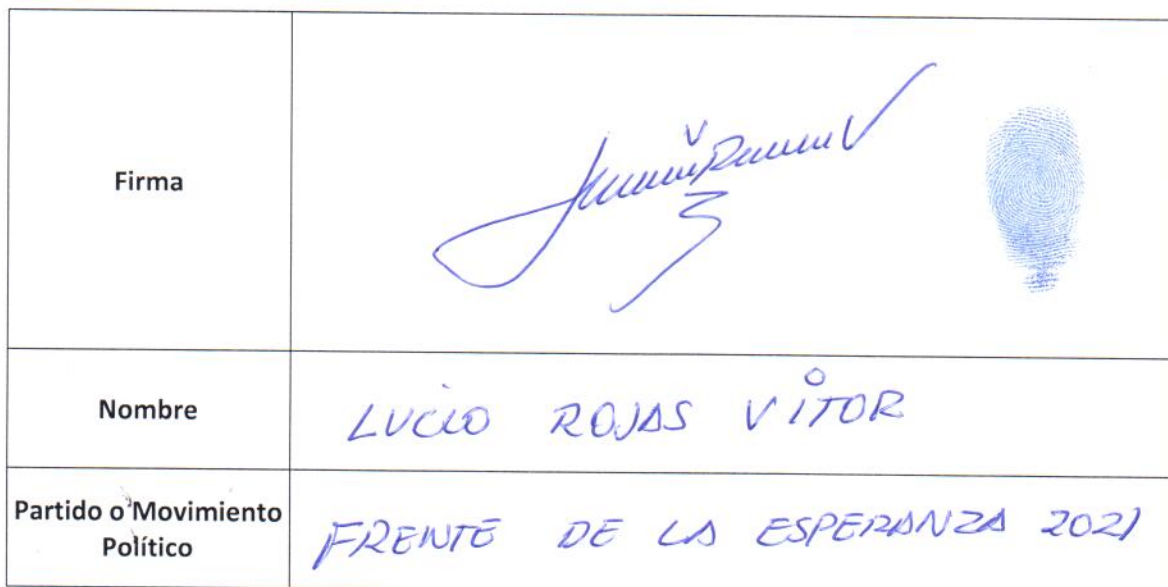 Firma
Nombre
LUCIO ROJAS VITOR
Partido o Movimiento
Político
FRENTE DE LA ESPERANZA 2021